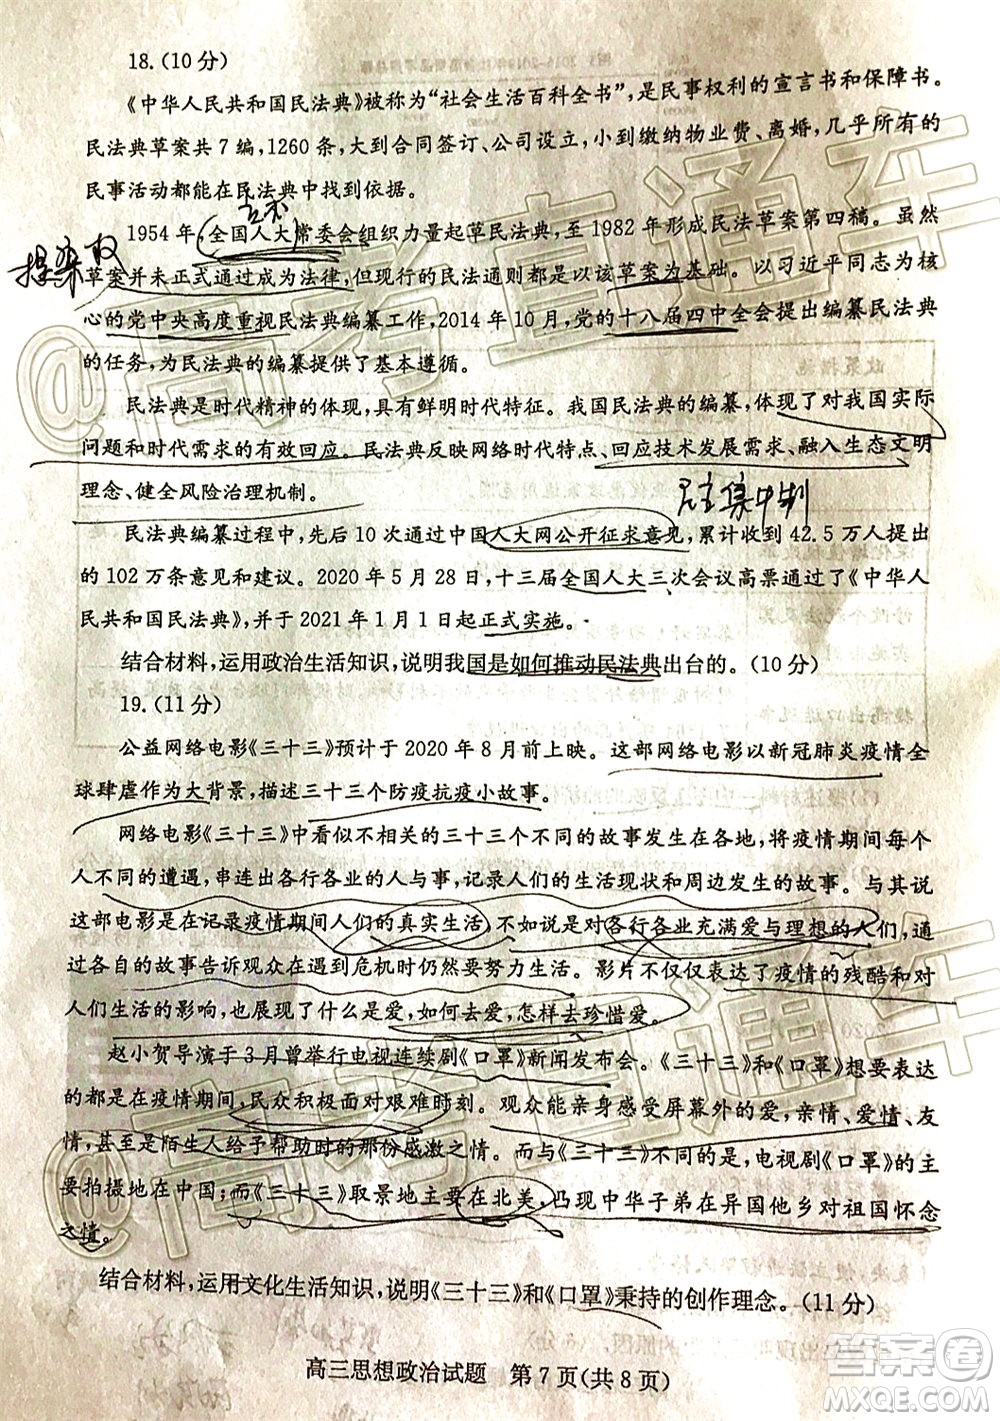 18.(10分)
《中华人民共和国民法典》被称为“社会生活百科全书”,是民事权利的宣言书和保障书。
民法典草案共7编,1260条,大到合同签订、公司设立,小到缴纳物业费、离婚,几乎所有的
民事活动都能在民法典中找到依据。
1954年,全国人大常委会组织力量起草民法典,至1982年形成民法草案第四稿。虽然
提案权
草案并未正式通过成为法律,但现行的民法通则都是以该草案为基础。以习近平同志为核
心的党中央高度重视民法典编纂工作,2014年10月,党的十八届四中全会提出编纂民法典
的任务,为民法典的编纂提供了基本遵循。
民法典是时代精神的体现,具有鲜明时代特征。我国民法典的编纂,体现了对我国实际
问题和时代需求的有效回应。民法典反映网络时代特点、回应技术发展需求、融入生态文明
理念、健全风险治理机制。
民主集中制
民法典编纂过程中,先后10次通过中国人大网公开征求意见,累计收到42.5万人提出
的102万条意见和建议。2020年5月28日,十三届全国人大三次会议高票通过了《中华人
民共和国民法典》,并于2021年1月1日起正式实施。
结合材料,运用政治生活知识,说明我国是如何推动民法典出台的。(10分)
19.(11分)
公益网络电影《三十三》预计于2020年8月前上映。这部网络电影以新冠肺炎疫情全
球肆虐作为大背景,描述三十三个防疫抗疫小故事。
网络电影《三十三》中看似不相关的三十三个不同的故事发生在各地,将疫情期间每个
人不同的遭遇,串连出各行各业的人与事,记录人们的生活现状和周边发生的故事。与其说
这部电影是在记录疫情期间人们的真实生活,不如说是对各行各业充满爱与理想的人们,通
过各自的故事告诉观众在遇到危机时仍然要去爱。影片不仅表达了疫情的残酷和对
人们生活的影响,也展现了什么是爱,如何去爱,怎样去珍惜爱。
赵小贺导演于3月曾举行电视连续剧《口罩》新闻发布会。《三十三》和《口罩》想表达
的都是在疫情期间,民众积极面对艰难时刻。观众能亲身感受屏幕外的爱,亲情、爱情、友
情,甚至是陌生人给予帮助时的那份感激之情。而与《三十三》不同的是,电视剧《口罩》的主
要拍摄地在中国;而《三十三》取景地主要在北美,凸现中华子弟在异国他乡对祖国怀念
之情。
结合材料,运用文化生活知识,说明《三十三》和《口罩》秉持的创作理念。(11分)
高三思想政治试题 第7页(共8页)
@高考直通车
@高考直通车
答案圈
MXQE.COM